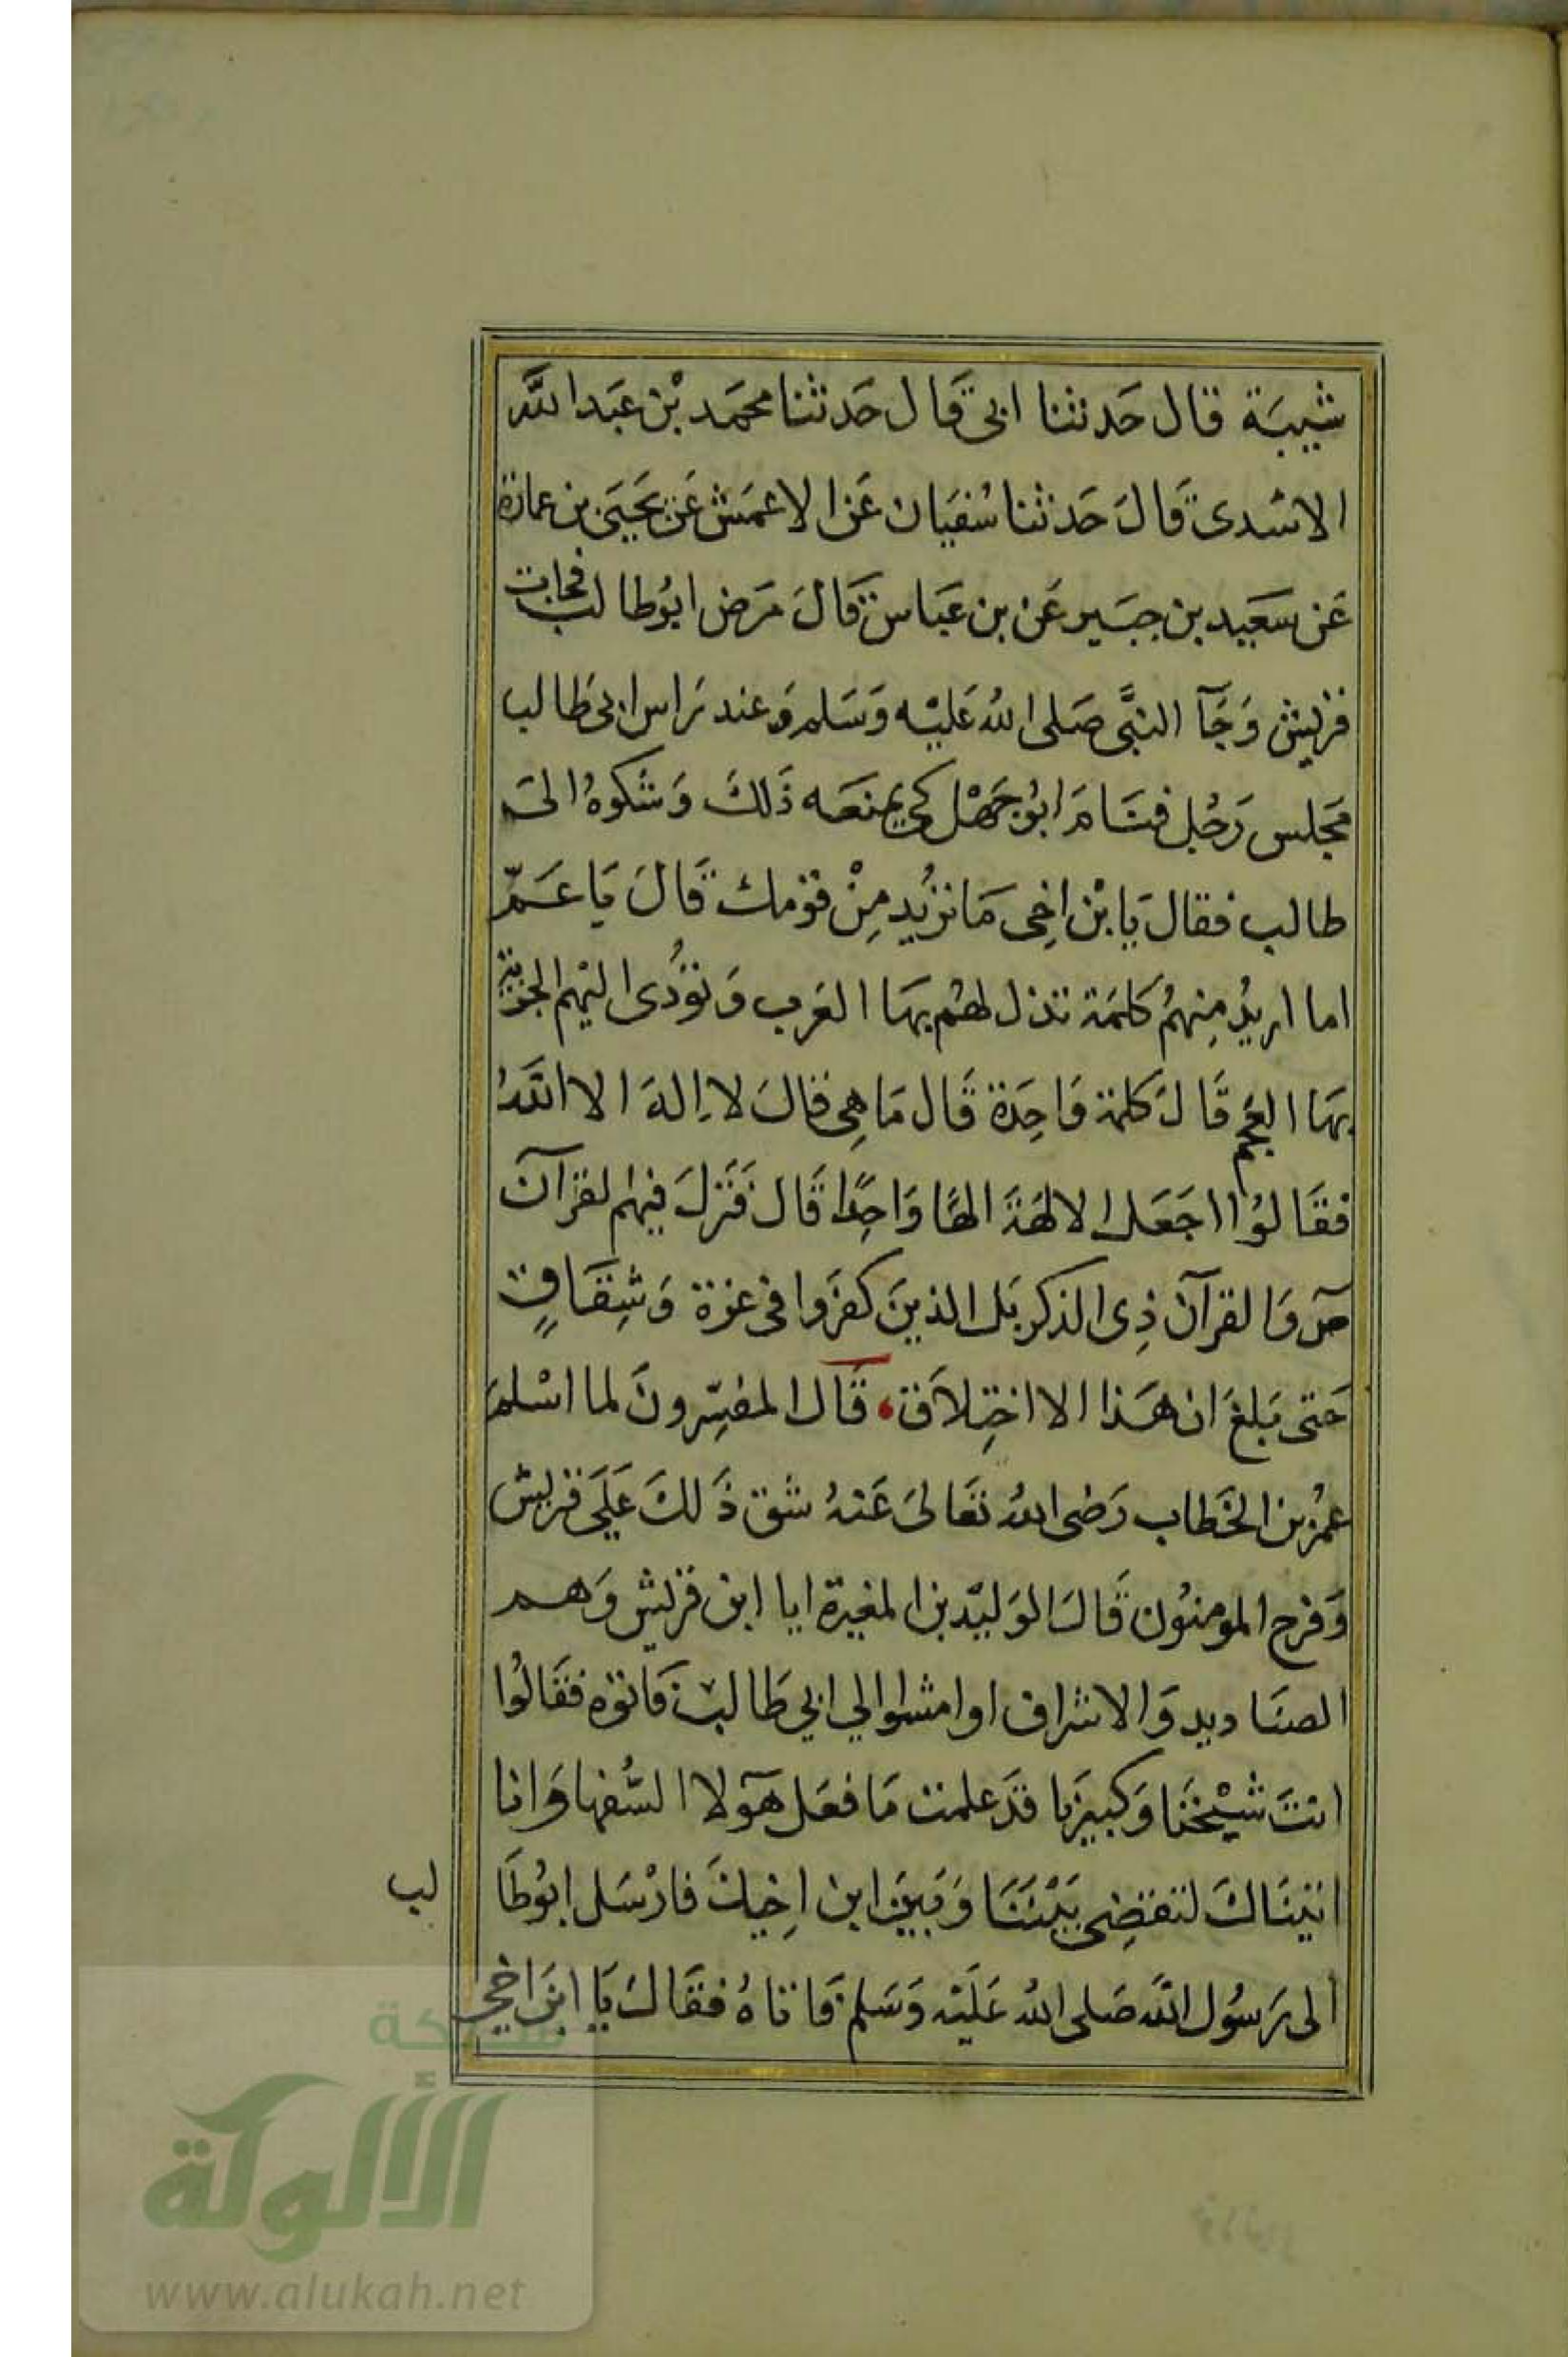 شيبَة قال حَدثنا ابى قَال حَدثنا محمَد بْن عَبَد اللَّه
الاسَدى قَالَ حَدثنا سُفيَان عَن الاعمَش عَن يَحيَى بن عمارة
عَن سَعَيد بن جبَير عَن بن عَباس قَالَ مَرَض ابوُطالب فجات
قريش وَجَآ النبَّى صَلى اللهُ عَليْه وَسَلم وَعند رَاس ابى طَالب
مَجلس رَجُل فقَامَ ابوُجَهْل كى يمنعَه ذَلكَ وَشكوهُ الىَ
طالب فقالَ يَا بْن اخِى مَا تريُد مِنْ قومك قَالَ يَا عَمّ
اما اريدُ مِنهمُ كلمَة تذل لهُم بهَا العَرب وَتؤدُى اليْهم الجزية
بهَا العجم قَالَ كلمة وَاحِدَة قَال مَا هِى قالَ لا اِلهَ الا اللَّهُ
فقَالوُا اجَعَل الالهَةَ الهًا وَاحِدًا قَالَ فَنَزلَ فيهم لقرآن
صۤ وَالقرآن ذِى الذكر بَل الذينَ كفرَوا فى عزة وَشِقَاقٍ
حَتى بَلغَ ان هَذا الا اختِلاَق، قَال المفسِّرونَ لما اسْلمَ
عمُر بن الخَطاب رَضى اللهُ تعَالىَ عَنهُ شق ذَلكَ عَلىَ قريش
وَفرح المومنوُن قَالَ الوَليّد بن المغيرة ايا ابن قريش وَهم
الصنَاديد وَالاشراف اوامشوا الي ابي طَالب فَاتوَه فقَالوُا
انتَ شيْخنَا وَكبيرَنا قدَ علمت مَا فعَل هَؤلا السُّفها وَانا
اتيَناكَ لتقضِى بَيْننَا وَبَينَ ابن اخِيكَ فارْسَل ابوُطَا
لب
الى رَسوُل اللَّه صَلى اللهُ عَليَه وَسَلم فَاتاهُ فقَالَ يَا ابنَ اخى
شبكة
الألوكة
www.alukah.net